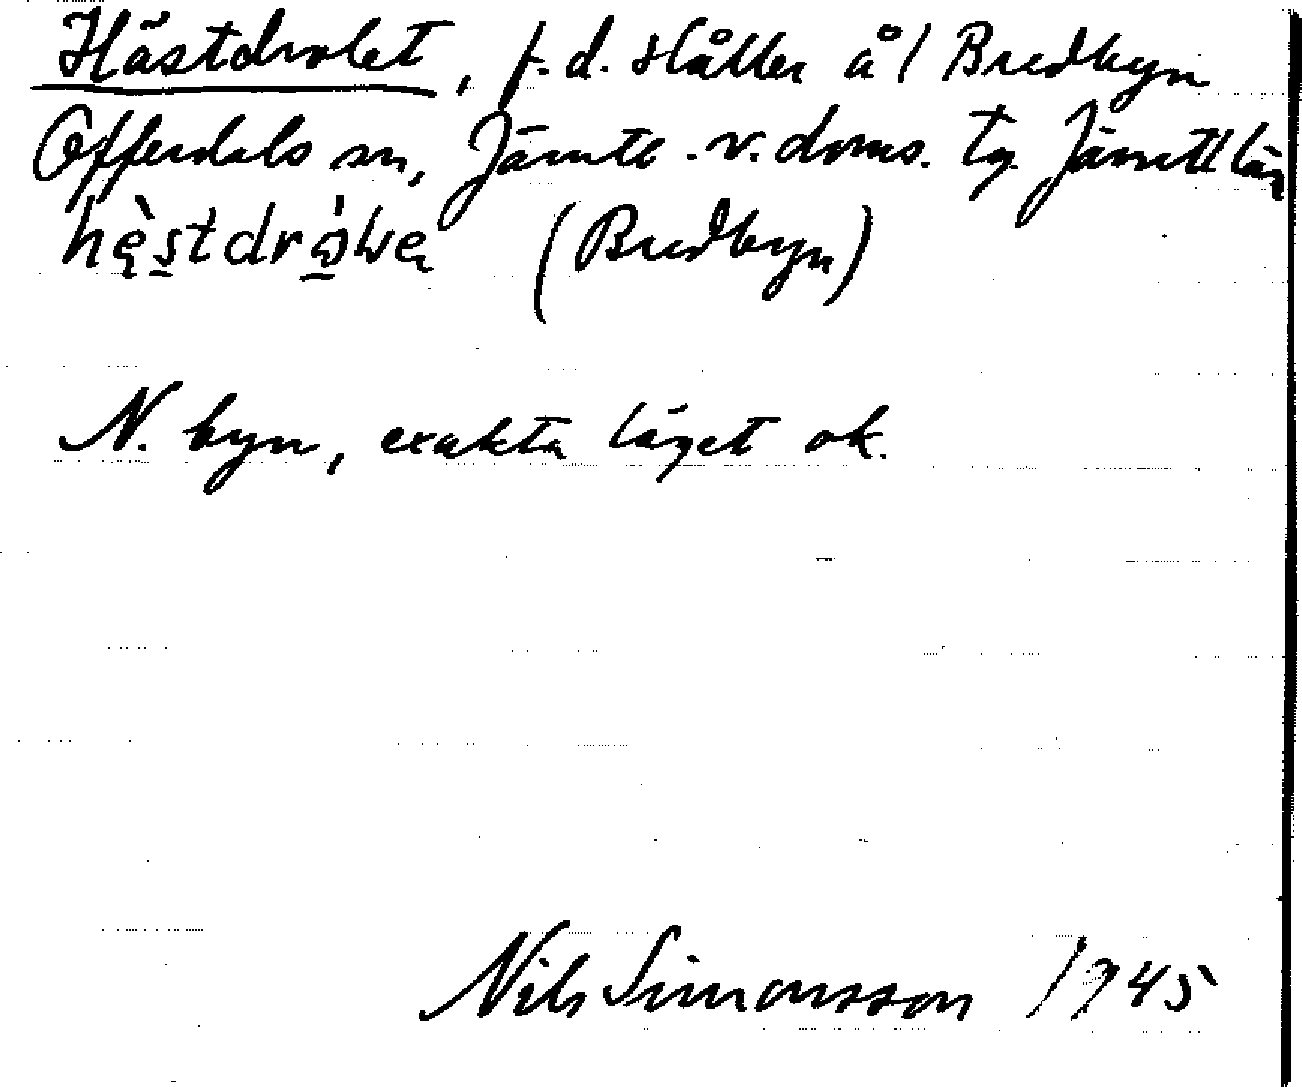 Hästdrolet, f.d. slåtter å / Bredbyn
Offerdals sn, Jämtl. v. doms. tg. Jämtl län
(Bredbyn)
N. byn, exakta läget ok.
Nils Simonsson 1945